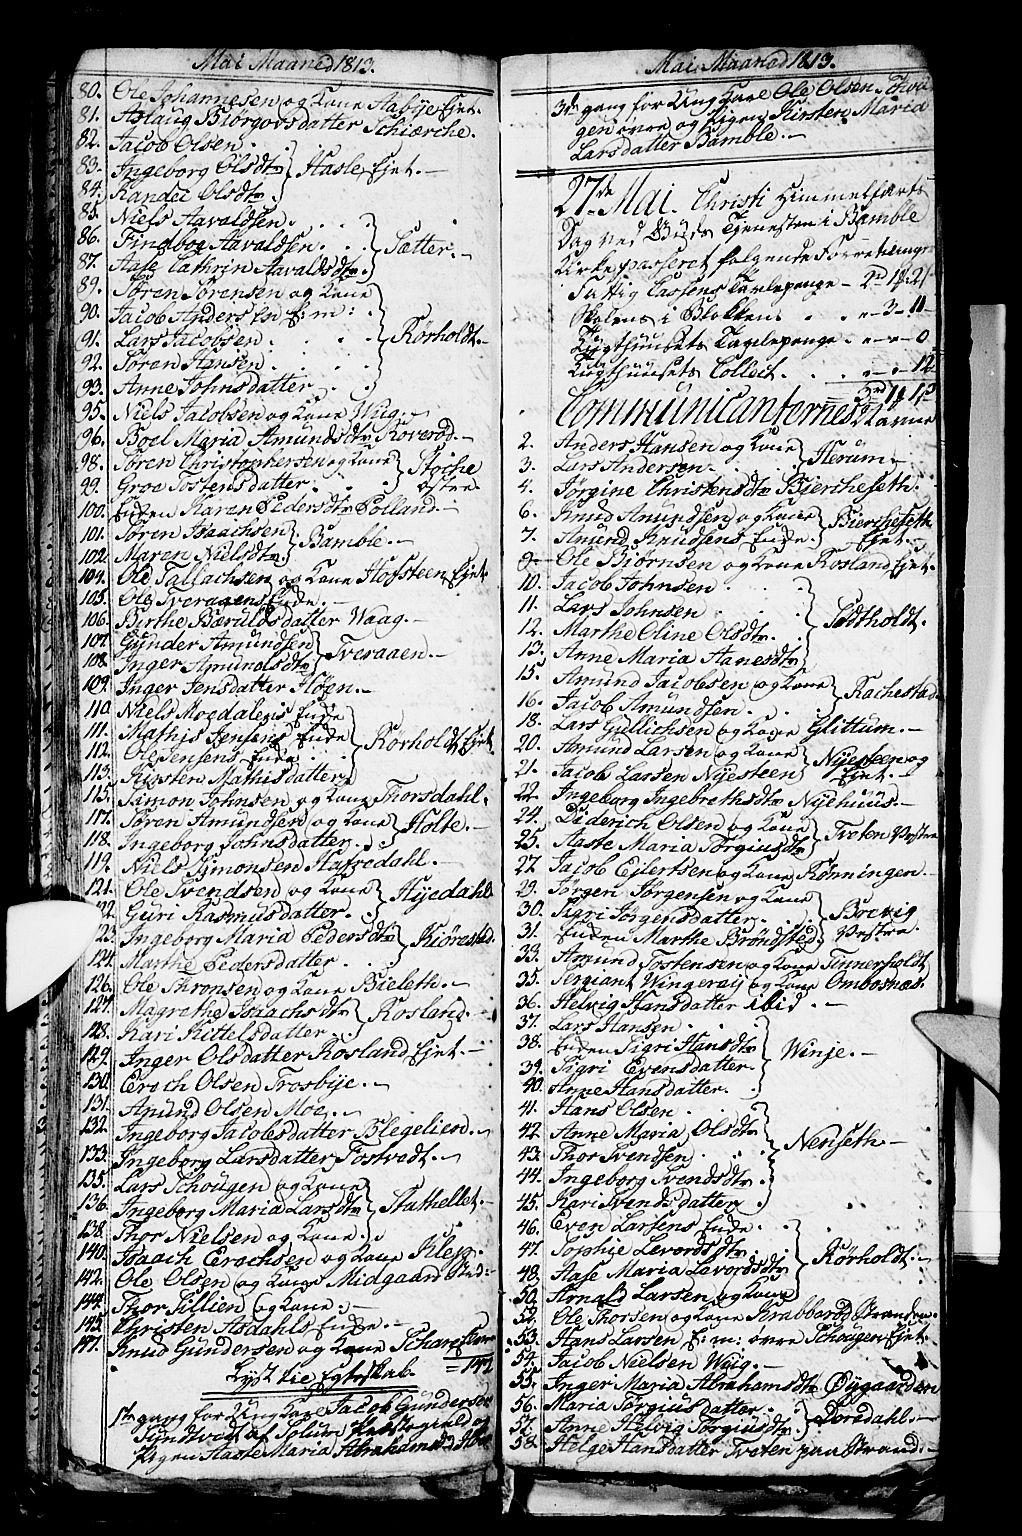 Mai Maaned 1813.
80. Ole Johannesen og Kone Aabye Ejet.
81. Aslaug Biørgovsdatter Schiærche.
82. Jacob Olsen
83. Ingeborg Olsdtr Hasle Ejet.
84. Randei Olsdtr
85. Niels Aavaldsen
86. Findbog Aavaldsen Sætter.
87. Aase Cathrin Aavaldsdtr
89. Søren Sørensen og Kone
90. Jacob Andersen E: m:
91. Lars Jacobsen Rørholdt.
92. Søren Hansen
93. Anne Johnsdatter
95. Niels Jacobsen og Kone Waag.
96. Boel Maria Amundsdtr Roverød.
98. Søren Christophersen og Kone Stoche
99. Groe Tostensdatter østre
100. Enken Maren Pedersdtr Rolland.
101. Søren Isaachsen Bamble.
102. Maren Nielsdtr
104. Ole Tallachsen og Kone Hofsteen Ejet.
105. Ole Tveraaens Enke.
106. Birthe Bærulsdatter Waag.
107. Gunder Amundsen Tveraaen.
108. Inger Amundsdtr
109. Inger Jensdatter Fløen.
110. Niels Moedalens Enke
111. Mathis Jensens Enke Rørholdt Ejet
112. Ole Jensens Enke
113. Kirsten Mathisdatter
115. Simon Johnsen og Kone Thorsdahl.
117. Søren Amundsen og Kone Holte.
118. Ingeborg Johnsdatter
119. Niels Simonsen Hafredahl.
121. Ole Svendsen og Kone Hyedahl
122. Guri Rasmusdatter.
123. Ingeborg Maria Pedersdtr Kiørestad.
124. Marthe Pedersdatter
126. Ole Thronsen og Kone Bieleth.
127. Magrethe Isaachsdtr Rosland.
128. Kari Kittelsdatter
129. Inger Olsdatter Rosland Ejet.
130. Eroch Olsen Trosbye.
131. Amund Olsen Moe.
132. Ingeborg Jacobsdatter Blegelien.
133. Ingeborg Larsdatter Fostvedt.
135. Lars Schougen og Kone
136. Ingeborg Maria Larsdtr Stathellet.
138. Thor Nielsen og Kone
140. Isaach Erochsen og Kone Klep.
142. Ole Olsen og Kone Midgaard
144. Thor Lillien og Kone
145. Christen Asdahls Enke.
147. Knud Gundersen og Kone
= 147
Lyst til Egteskab.
1ste gang for Ung Karl Jacob Gundersen
Sundvig af Solum Præstegield og
Pigen Aaste Maria Abrahamsd
Mai Maaned 1813.
3die gang for Ung Karl Ole Olsen
gen øvre og Pigen Kirsten Maria
Larsdatter Bamble.
27de Mai. Christi Himmelfarts
Dag ved Guds Tjenesten i Bamble
Kirke passeret følgende Forretninger
Fattig Cassens Tavlepenge
Skolens i Blokken
Tugthuusets Tavlepenge
Tugthuusets Collect 12
Communicanternes Navne
2. Anders Hansen og Kone Herum.
3. Lars Andersen
4. Jørgine Christensdtr Biercheseth.
6. Knud Amundsen og Kone Bierchesetk
7. Amund Knudsens Enke Ejet.
9. Ole Biørnsen og Kone Rosland Ejet.
10. Jacob Johnsen
11. Lars Johnsen Tødtholdt.
12. Marthe Oline Olsdtr
13. Anne Maria Hanesdtr
15. Amund Jacobsen og Kone Rachestad
16. Jacob Amundsen
18. Lars Gullichsen og Kone Glittum.
20. Amund Larsen og Kone Nyesteen og
21. Jacob Larsen Nyesteen Ejet.
22. Ingeborg Ingebrethsdtr Nyehuus.
24. Diderich Olsen og Kone Tveten Vestre
25. Aaste Maria Torgiusdtr
27. Jacob Ejlertsen og Kone Rønningen.
29. Jørgen Jørgensen og Kone
30. Sigri Jørgensdatter Brevig
31. Enken Marthe Brøndsted Vestre.
33. Amund Tostensen og Kone Tinnerholdt
35. Sergiant Wingeraij og Kone Ombosnæs.
36. Helvig Hansdatter ibid.
37. Lars Hansen
38. Enken Sigri Hansdtr Winje.
39. Sigri Evensdatter
40. Anne Hansdatter
41. Hans Olsen
42. Anne Maria Olsdtr
43. Thor Svendsen Nenseth.
44. Ingeborg Svendsdtr
45. Kari Svendsdatter
46. Even Larsens Enke
47. Sophie Levordsdtr Rørholdt.
48. Aase Maria Lavordsdtr
50. Arnald Larsen og Kone
52. Ole Thorsen og Kone Krabberød Stranden.
53. Hans Larsen E: m: øvre Schougen Ejet.
54. Jacob Nielsen Waag.
55. Inger Maria Abrahamsdtr Øygaarden
56. Maria Torgiusdatter Dordahl.
57. Anne Helvig Torgiusdtr
58. Helge Hansdatter Tveten paa Strand.